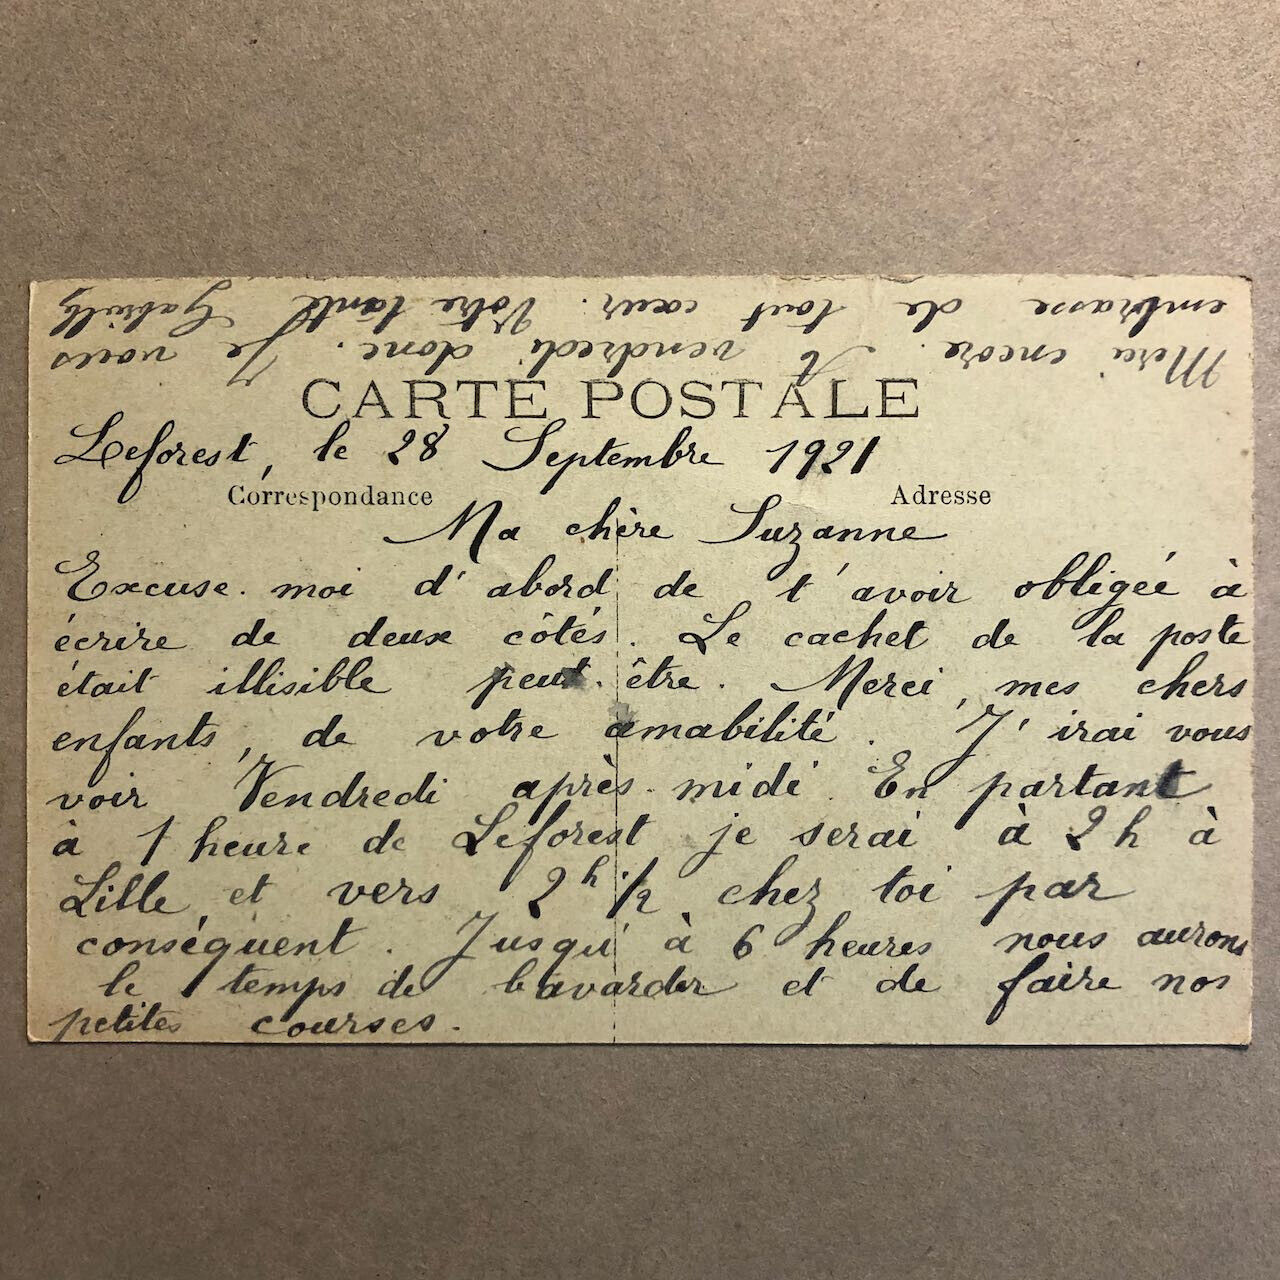 CARTE POSTALE
Leforest, le 28 Septembre 1921
Correspondance
Adresse
Ma chère Suzanne
Excuse-moi d'abord de t'avoir obligée à
écrire de deux côtés. Le cachet de la poste
était illisible peut-être. Merci, mes chers
enfants, de votre amabilité. J'irai vous
voir Vendredi après-midi. En partant
à 1 heure de Leforest je serai à 2 h à
Lille et vers 2h 1/2 chez toi par
conséquent. Jusqu'à 6 heures nous aurons
le temps de bavarder et de faire nos
petites courses.
Merci encore. A vendredi donc. Je vous
embrasse de tout cœur. Votre tante Gabrielle